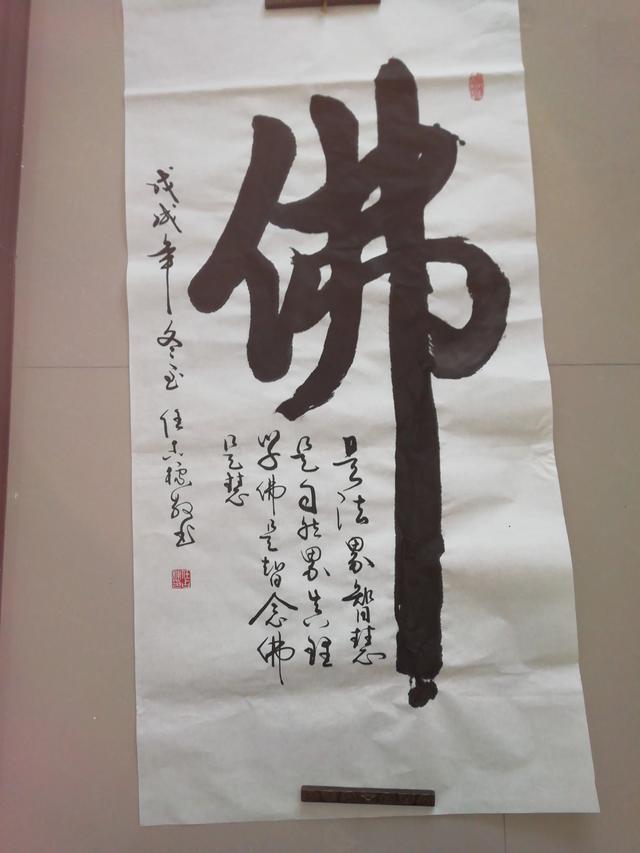 佛
是法界智慧
是自然界真理
学佛是智念佛
是慧
戊戌年冬至任
敬书